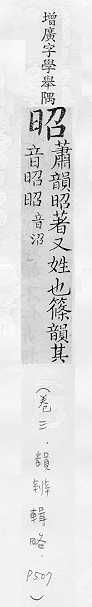 增廣字學舉隅
昭蕭韻昭著又姓也篠韻其
音昭昭音沼
(卷三.韻辨輯略.
P507)